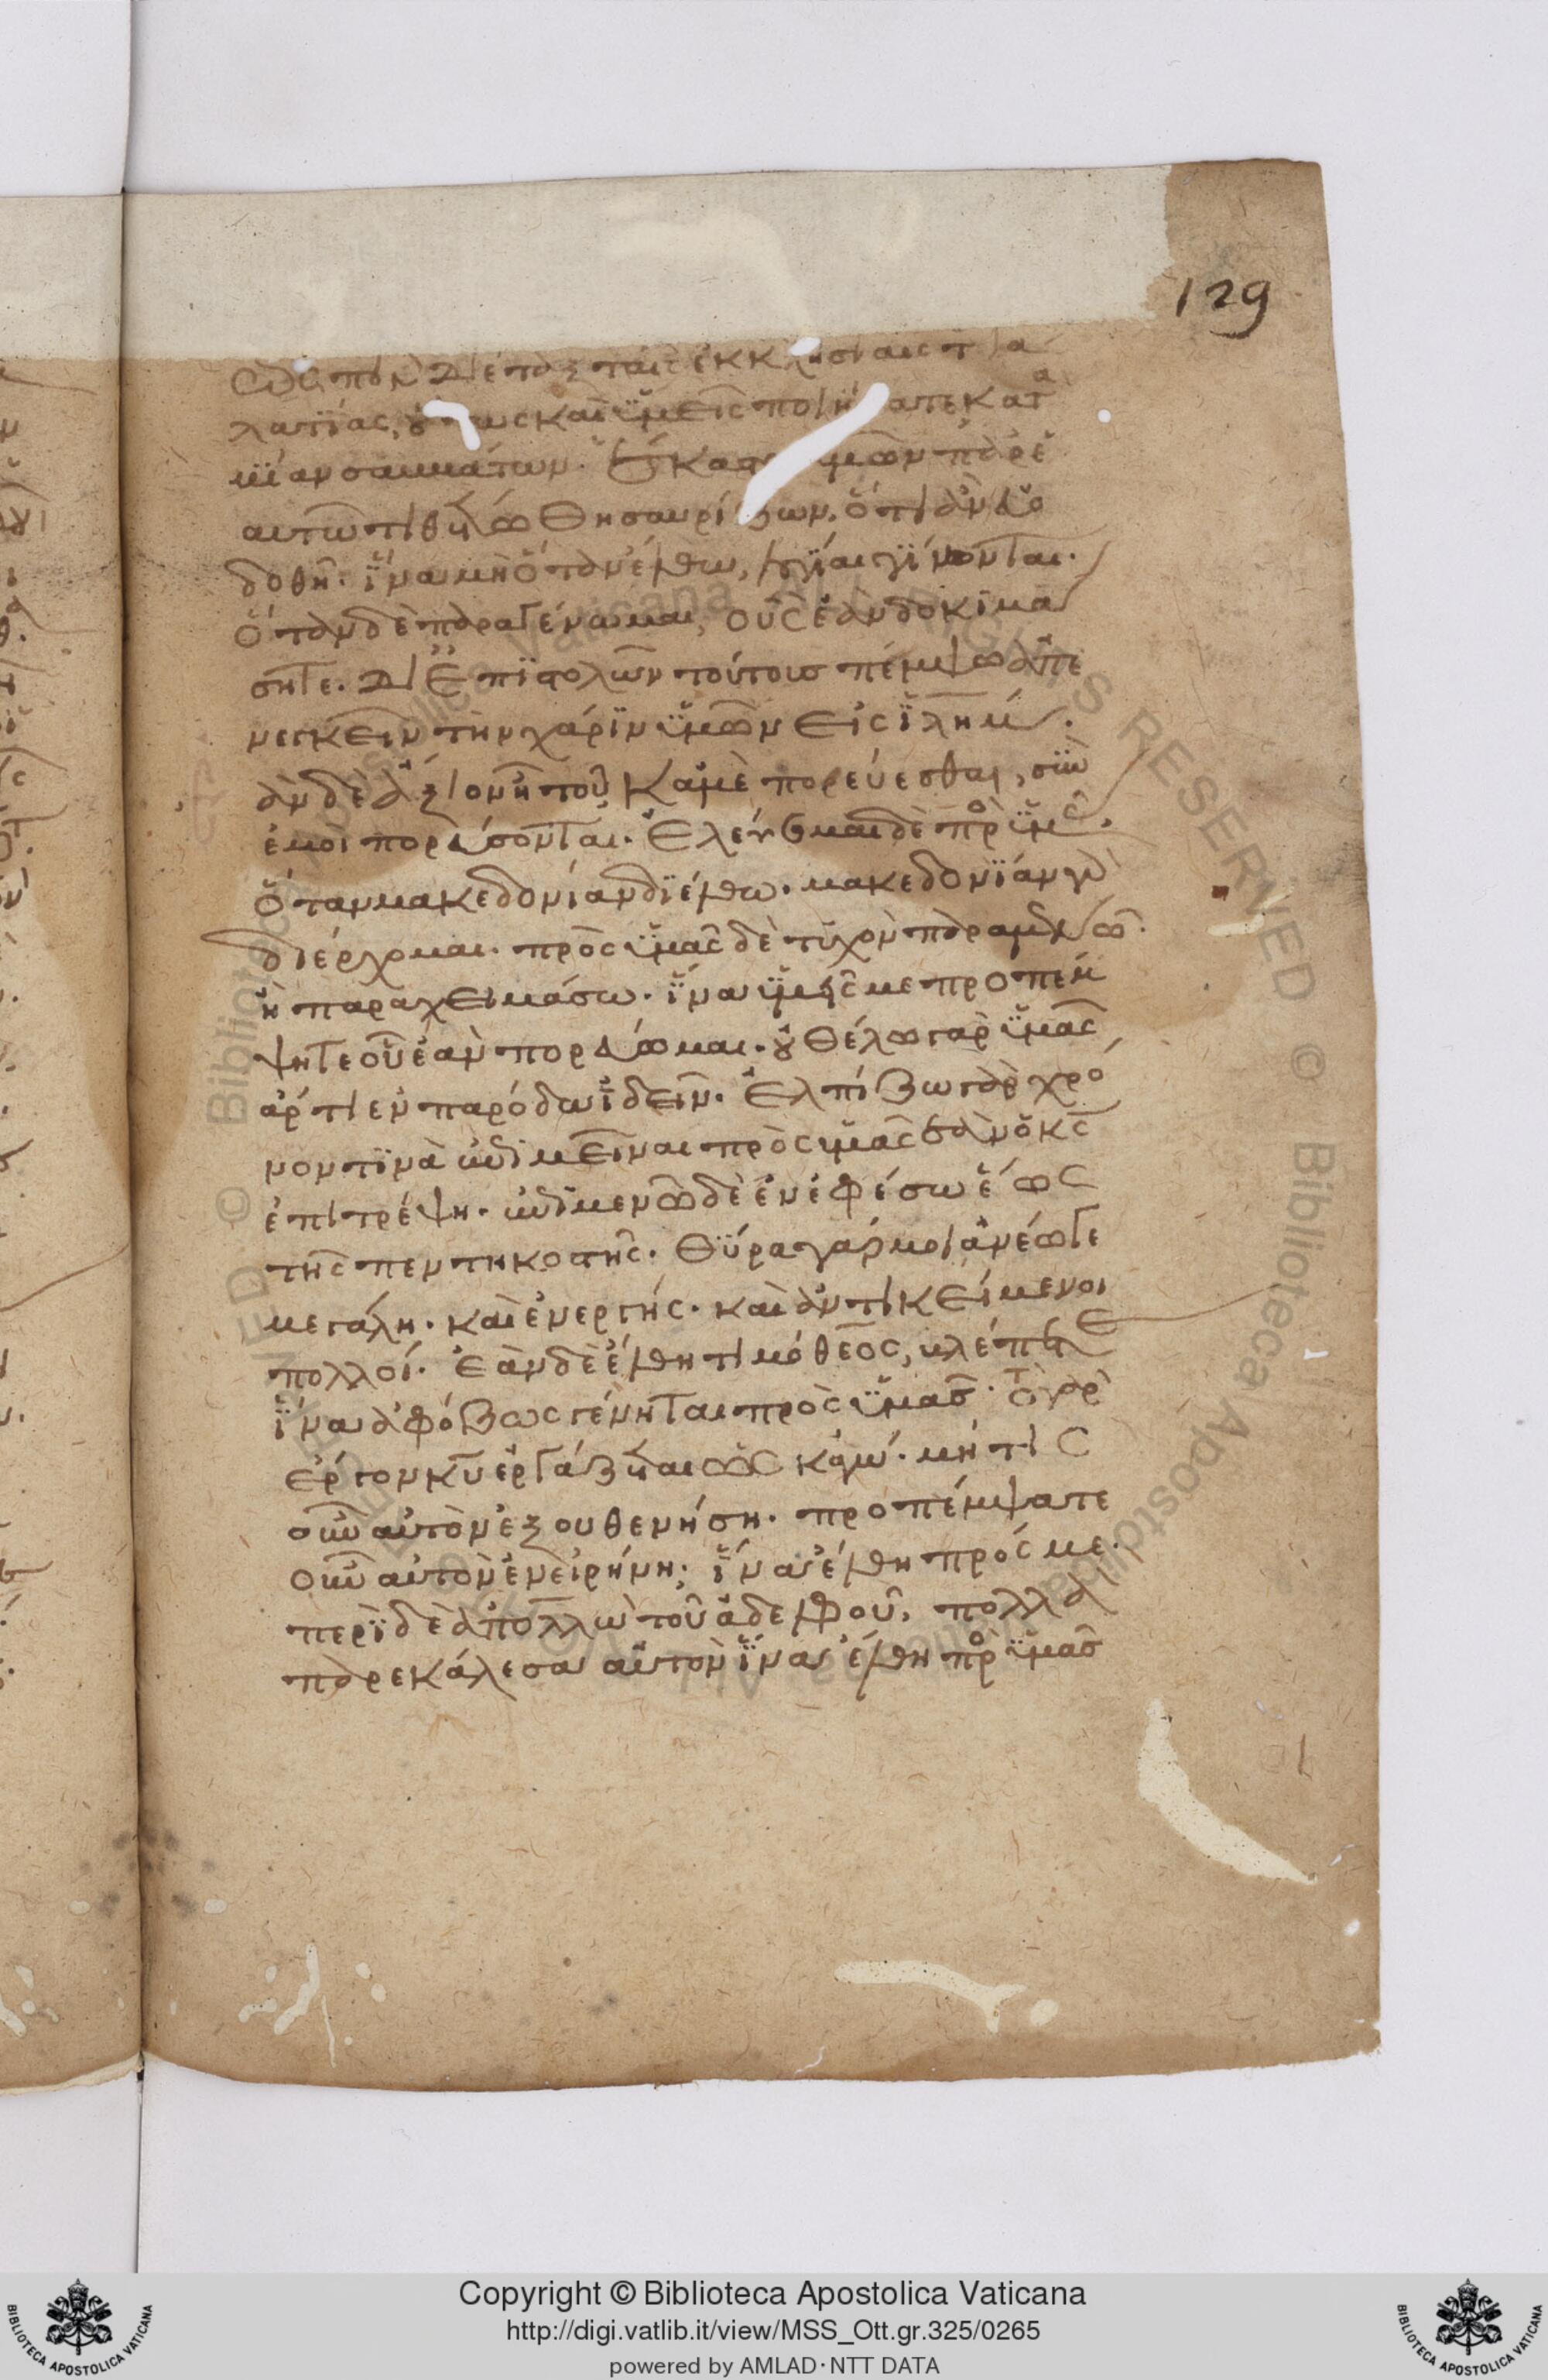 129
ὥσπερ διέταξα ταῖς ἐκκλησίαις τ γα
λατΐας, οὕτως καὶ ὑμεῖς ποιή ατε κατα
μΐαν σαμμάτων. ἕκαστ ὑμῶν παρ ἑ
αυτῶ τιθέτω θησαυρίζων, ὅτι ἂν εὐο
δοθῆ. ἵνα μὴ ὅταν ἔλθω, λογΐαι γΐνονται.
ὅταν δὲ παραγένωμαι, οὓς ἐὰν δοκιμά
σητε. δι ἐπϊστολῶν τούτους πέμψω ἀπε
νεγκεῖν τὴν χάρϊν ὑμῶν εἰς ἱλημ.
ἂν δὲ ἄξιον ἦ τοῦ κἀμὲ πορεύεσθαι, σὺν
ἐμοὶ πορεύσονται. ἐλεύσομαι δὲ πρ ὑμᾶς.
ὅταν μακεδονίαν διέλθω. μακεδονΐαν γὰρ
διέρχομαι. πρὸς ὑμᾶς δὲ τυχὸν παραμενῶ.
ἢ παραχειμάσω. ἵνα ὑμεῖς με προπέμ
ψητε οὗ ἐὰν πορεύωμαι. οὐ θέλω γὰρ ὑμᾶς
ἄρτι ἐν παρόδω ἰδεῖν. ἐλπίζω γὰρ χρό
νον τϊνὰ ἐπιμεῖναι πρὸς ὑμᾶς ἐὰν ὁ κς
ἐπιτρέψη. ἐπιμενῶ δὲ ἐν ἐφέσω ἕως
τῆς πεντηκοστῆς. θύρα γάρ μοι ἀνέωγε
μεγάλη. καὶ ἐνεργής. καὶ ἀντικείμενοι
πολλοί. ἐὰν δὲ ἔλθη τιμόθεος, βλέπετε
ἵνα ἀφόβως γένηται πρὸς ὑμᾶς. τὸ γὰρ
ἔργον κυ ἐργάζεται ὡς κἀγώ. μή τις
οὖν αὐτὸν ἐξουθενήση. προπέμψατε
οὖν αὐτὸν ἐν εἰρήνη; ἵνα ἔλθη πρός με.
περὶ δὲ ἀπολλὼ τοῦ ἀδελφοῦ, πολλὰ
παρεκάλεσα αὐτὸν ἵνα ἔλθη πρ ὑμᾶς
Copyright © Biblioteca Apostolica Vaticana
http://digi.vatlib.it/view/MSS_Ott.gr.325/0265
powered by AMLAD·NTT DATA
BIBLIOTECA APOSTOLICA VATICANA
BIBLIOTECA APOSTOLICA VATICANA